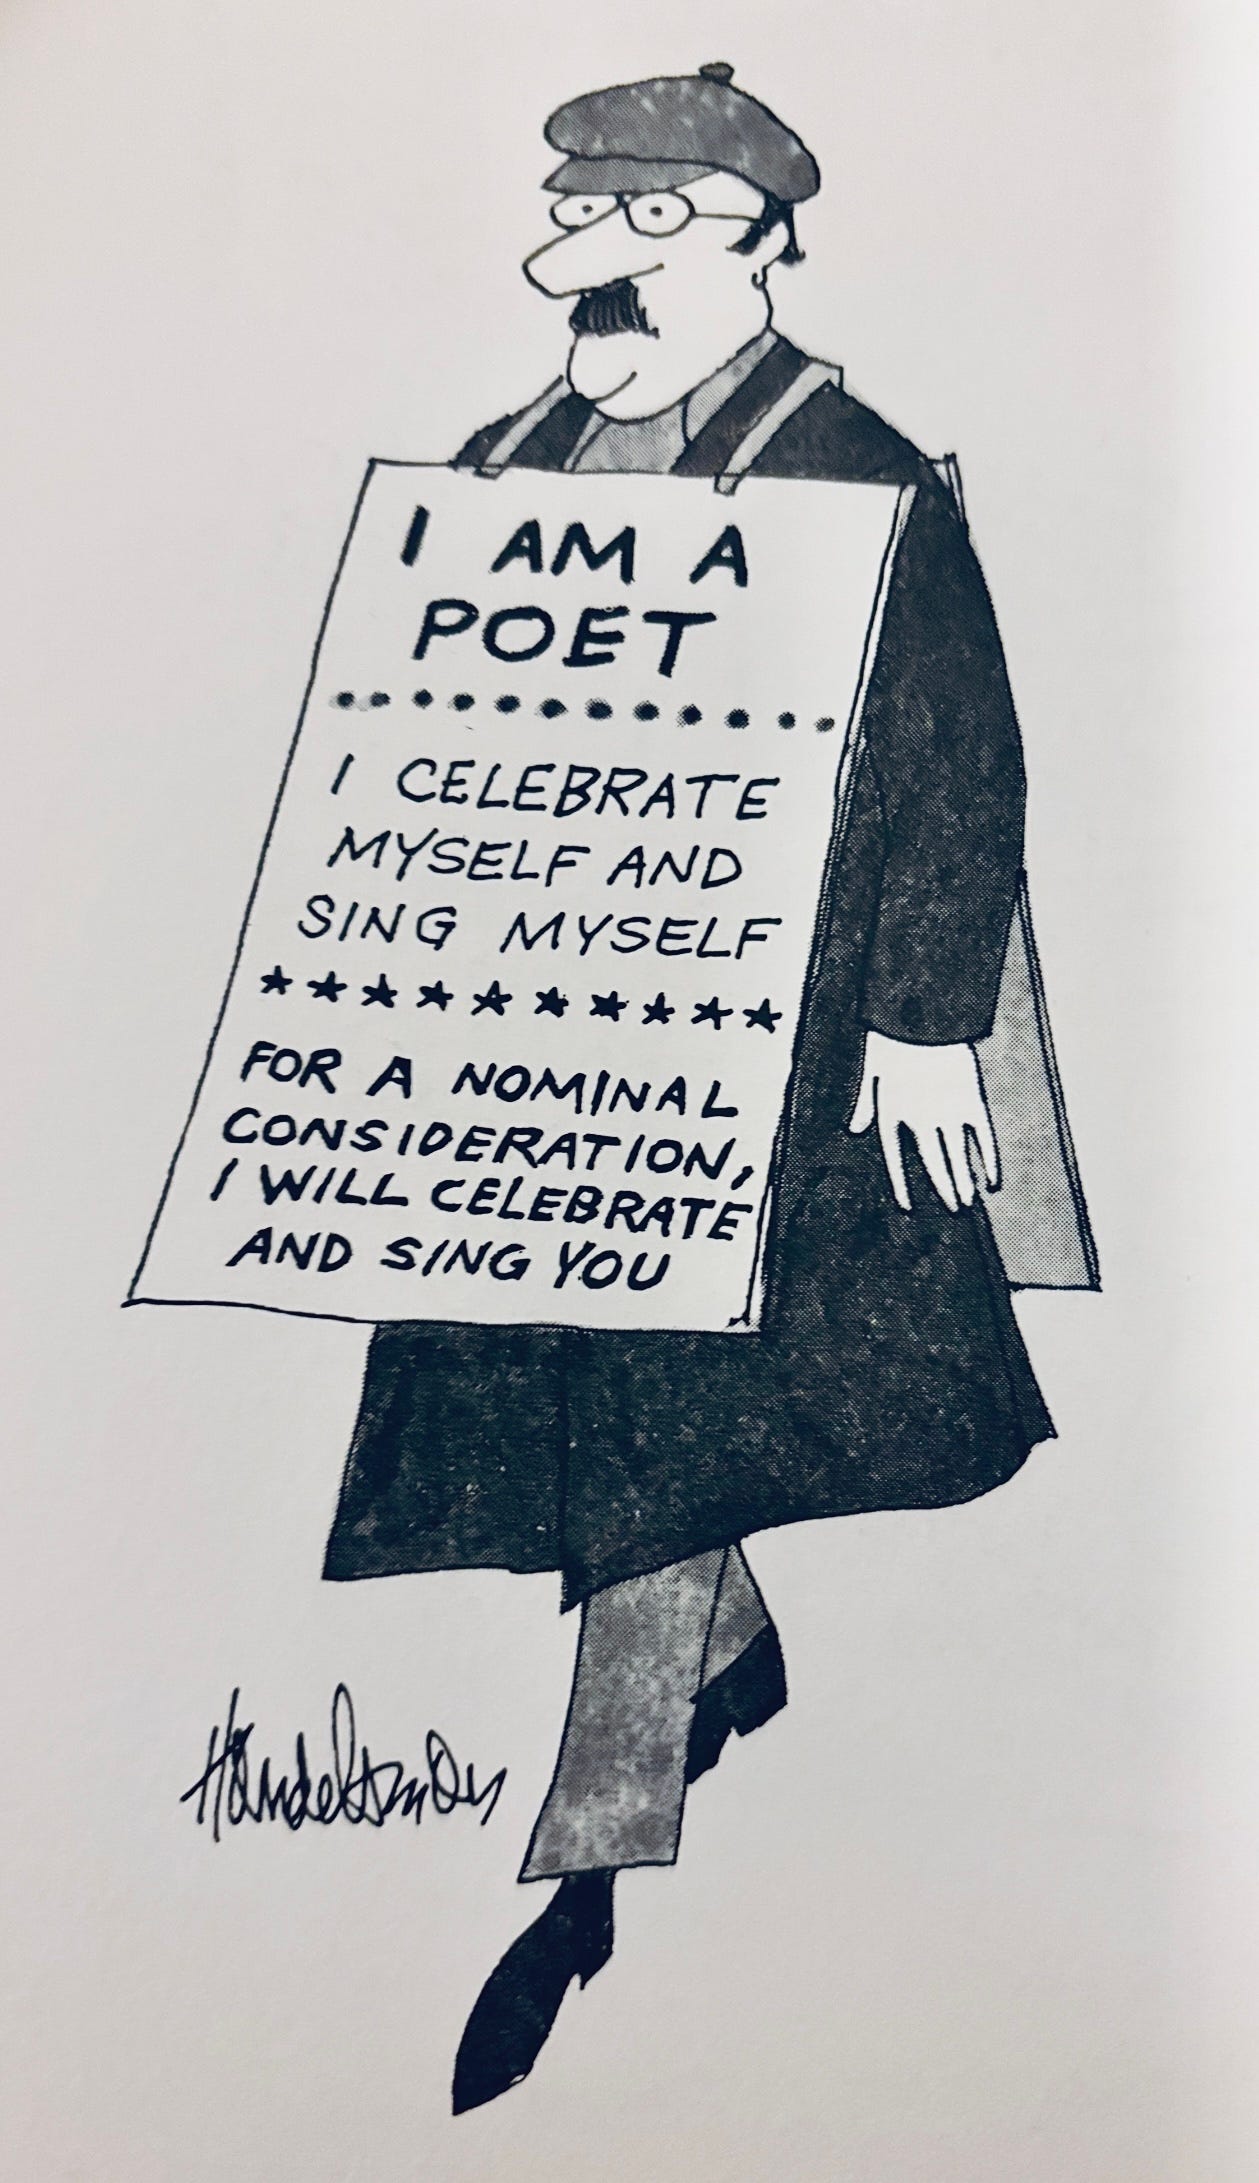 I AM A
POET
I CELEBRATE
MYSELF AND
SING MYSELF
FOR A NOMINAL
CONSIDERATION,
I WILL CELEBRATE
AND SING YOU
Handelsman